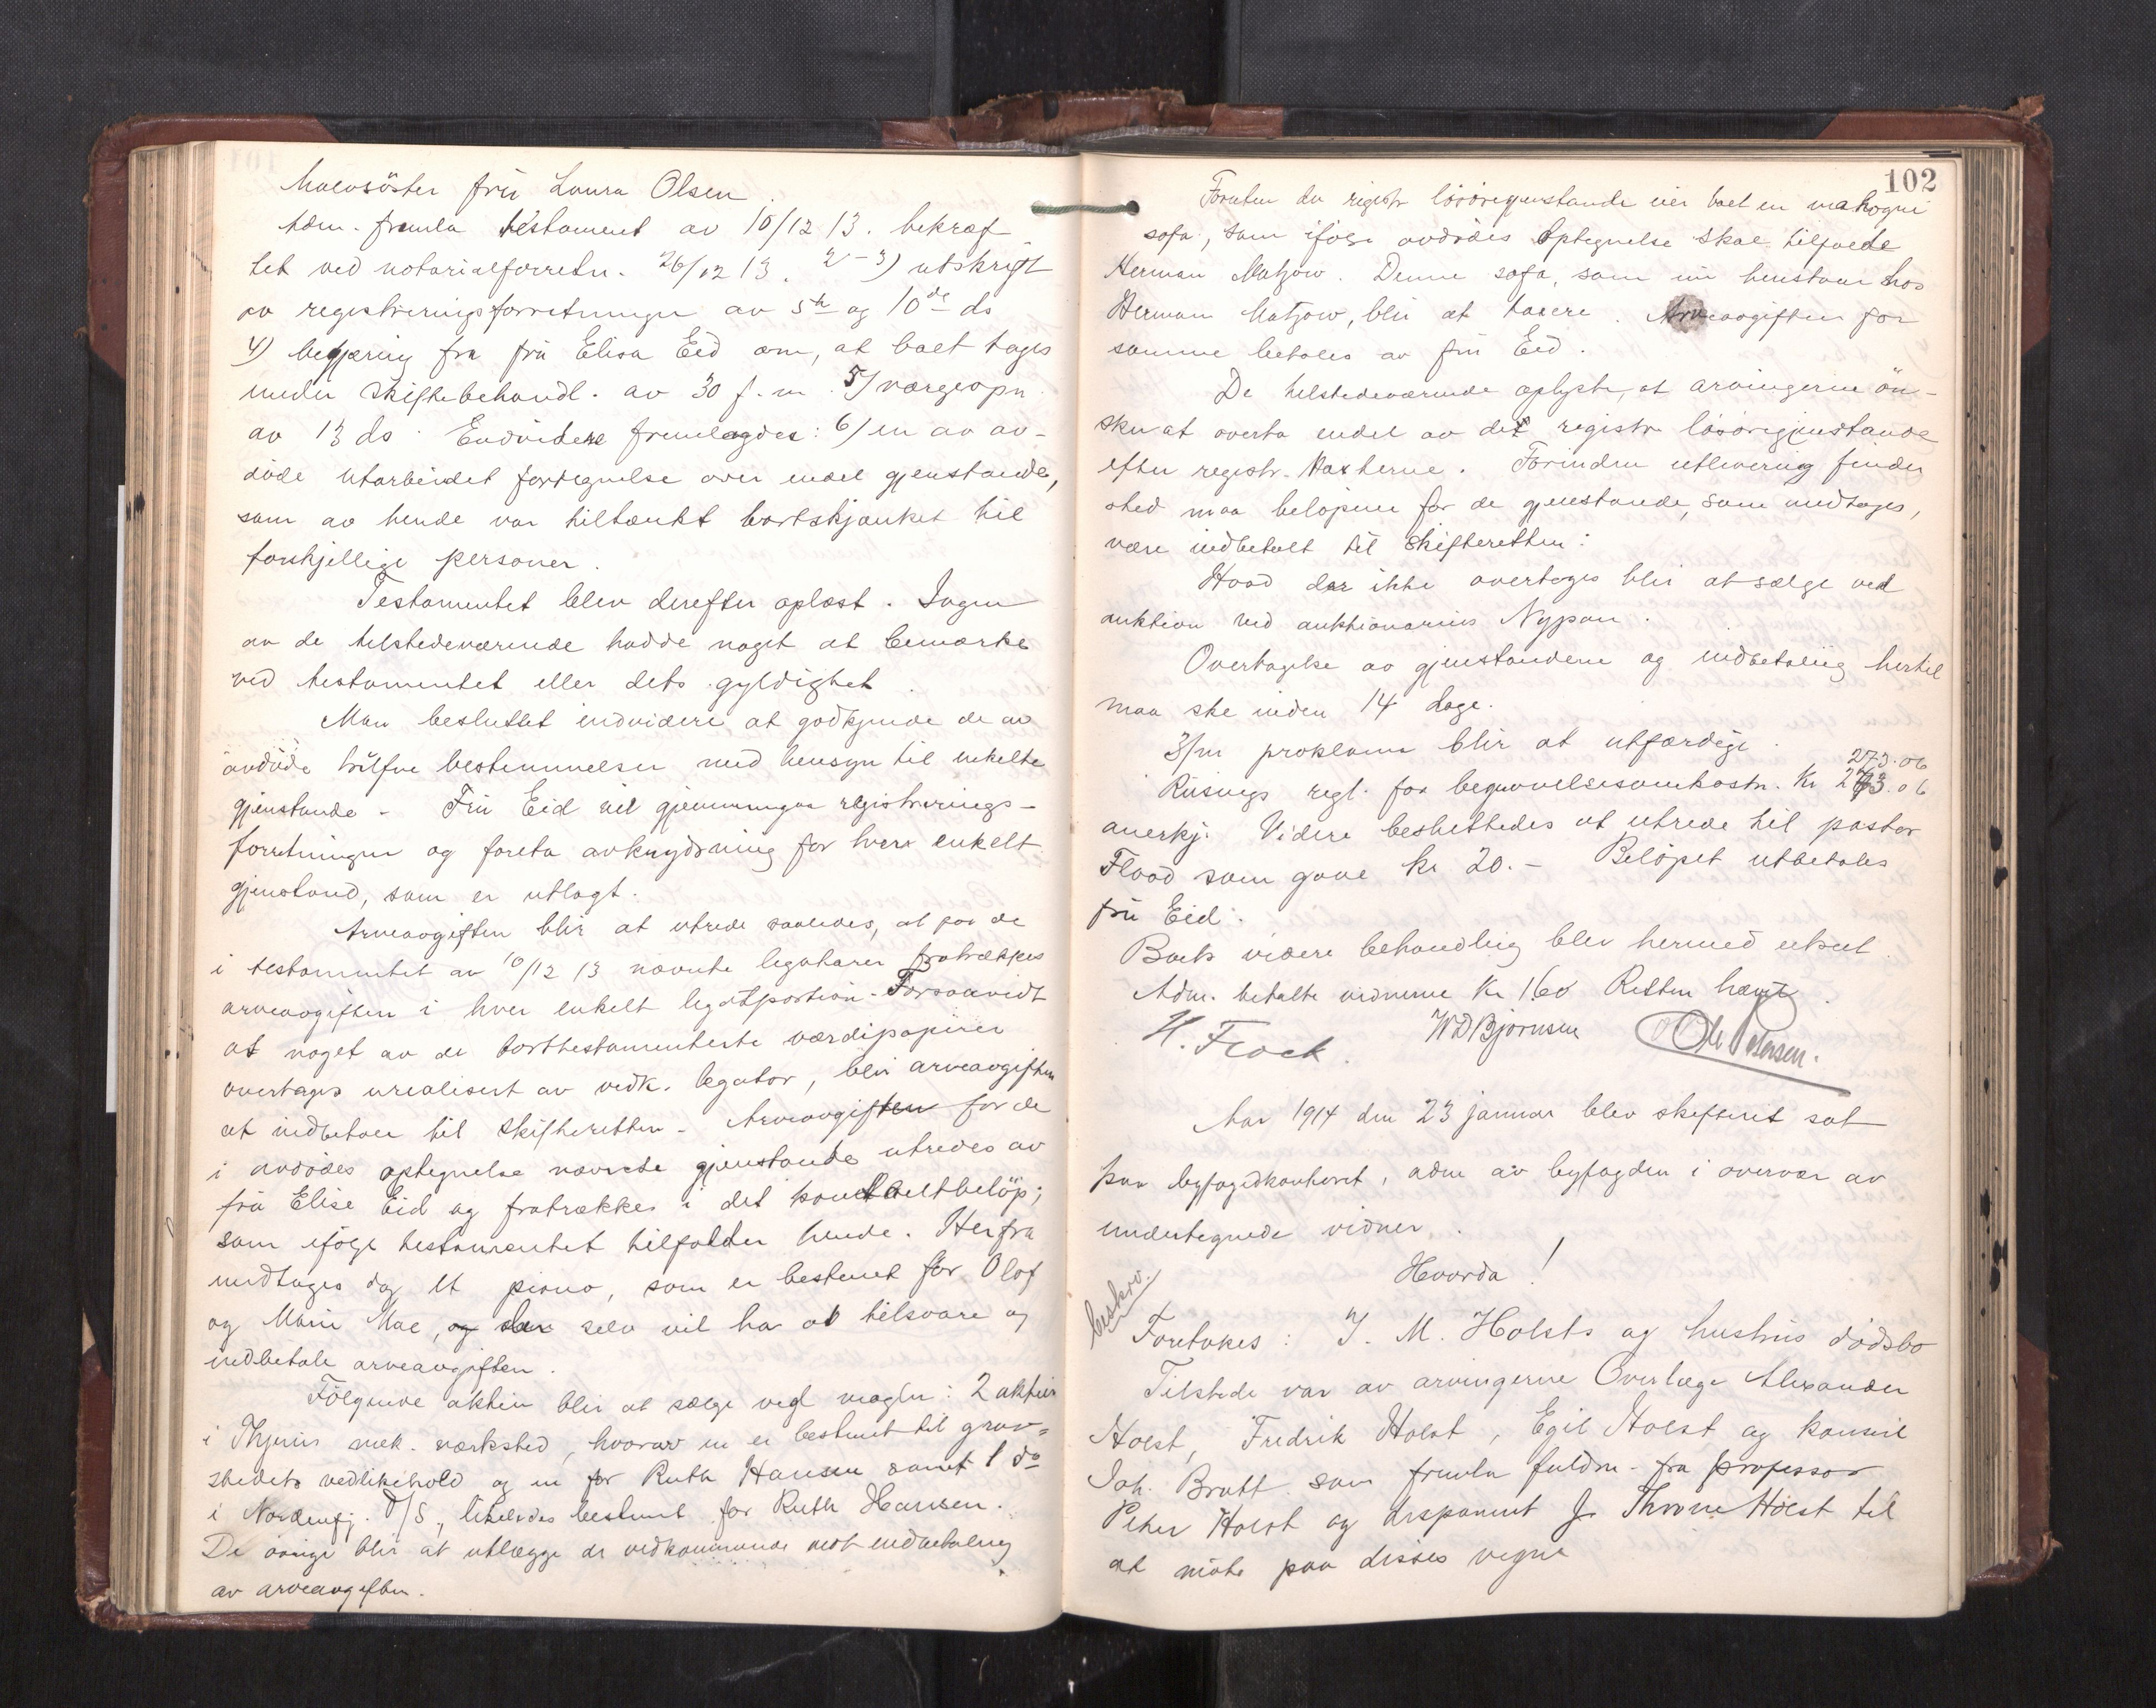 halvsöster frü Laura Olsen.
Adm. fremla testament av 10/12 13. bekræf
tet ved notarialforretn. 26/12 13. 2-3) utskrift
av registreringsforretninger av 5te og 10de ds
4) begjæring fra frü Elisa Eid om, at boet tages
under skiftebehandl. av 30 f. m. 5/ værgeopn.
av 13 ds. Endvidere fremlagdes: 6/ en av av-
döde utarbeidet fortegnelse over endel gjenstande,
som av hende var tiltænkt bortskjænket til
forskjellige personer.
Testamentet blev derefter oplæst. Ingen
av de tilstedeværende hadde noget at bemærke
ved testamentet eller dets gyldighet.
Man besluttet endvidere at godkjende de av
avdöde trufne bestemmelser med hensyn til enkelte
gjenstande - Frü Eid vil gjennemgaa registrerings-
forretningen og foreta avkrydsning for hver enkelt
gjenstand, som er utlagt.
Arveavgiften blir at utrede saaledes, at for de
i testamentet av 10/12 13 nævnte legatarer fratrækkes
arveavgiften i hver enkelt legatportion. Forsaavidt
at noget av de borttestamenterte værdipapirer
overtages urealisert av vedk. legatar, blir arveavgiften
at indbetale til skifteretten. Arveavgiften for de
i avdödes optegnelse nævnte gjenstande utredes av
frü Elise Eid og fratrækkes i det kontantbelöp;
som ifölge testamentet tilfalder hende. Herfra
undtages dog et piano, som er bestemt for Olaf
og Marie Moe, og der selv vil ha at tilsvare og
indbetale arveavgiften.
Fölgende aktier blir at sælge ved mægler: 2 aktier
i Thjems mek. værksted, hvorav en er bestemt til grav-
stedets vedlikehold og en for Ruth Hansen samt 1 do
i Nordenfj. D/S., likeledes bestemt for Ruth Hansen.
De övrige blir at utlægge de vedkommende mot indbetaling
av arveavgiften.
102
Foruten de registr lösöregjenstande eier boet en mahogni
sofa, som ifölge avdödes optegnelse skal tilfalde
Herman Matzow. Denne sofa, som nu henstaar hos
Herman Matzow, blir at taxere. Arveavgiften for
samme betales av frü Eid.
De tilstedeværende oplyste, at arvingerne ön-
sker at overta endel av det registr. lösöregjenstande
efter registr. taxterne. Forinden utlevering finder
sted maa belöpene for de gjenstande, som undtages,
være indbetalt til skifteretten:
Hvad der ikke overtages blir at sælge ved
auktion ved auktionarius Nypan.
Overtagelse av gjenstandene og indbetaling hertil
maa ske inden 14 dage.
3/m proklama blir at utfærdige.
273.06
Risings regl. for begravelsesomkostn. Kr 273.06
anerkj. Videre besluttedes at utrede til pastor
Flood som gave kr 20.- Belöpet utbetales
frü Eid.
Boets videre behandling blev hermed utsat.
Adm. betalte vidnerne Kr 1.60 Retten hævet.
H. Flock. WD Bjørnsen Ole Petersen.
Aar 1914 den 23 januar blev skifteret sat
paa byfogdkontoret, adm av byfogden i overvær av
undertegnede vidner.
Hvorda!
beskr.
Foretokes: J. M. Holsts og hustrüs dödsbo
Tilstede var av arvingerne Overlæge Alexander
Holst, Fredrik Holst, Egil Holst og konsul
Joh. Bratt som fremla fuldm. fra professor
Peter Holst og disponent J. Throne Holst til
at möte paa disses vegne